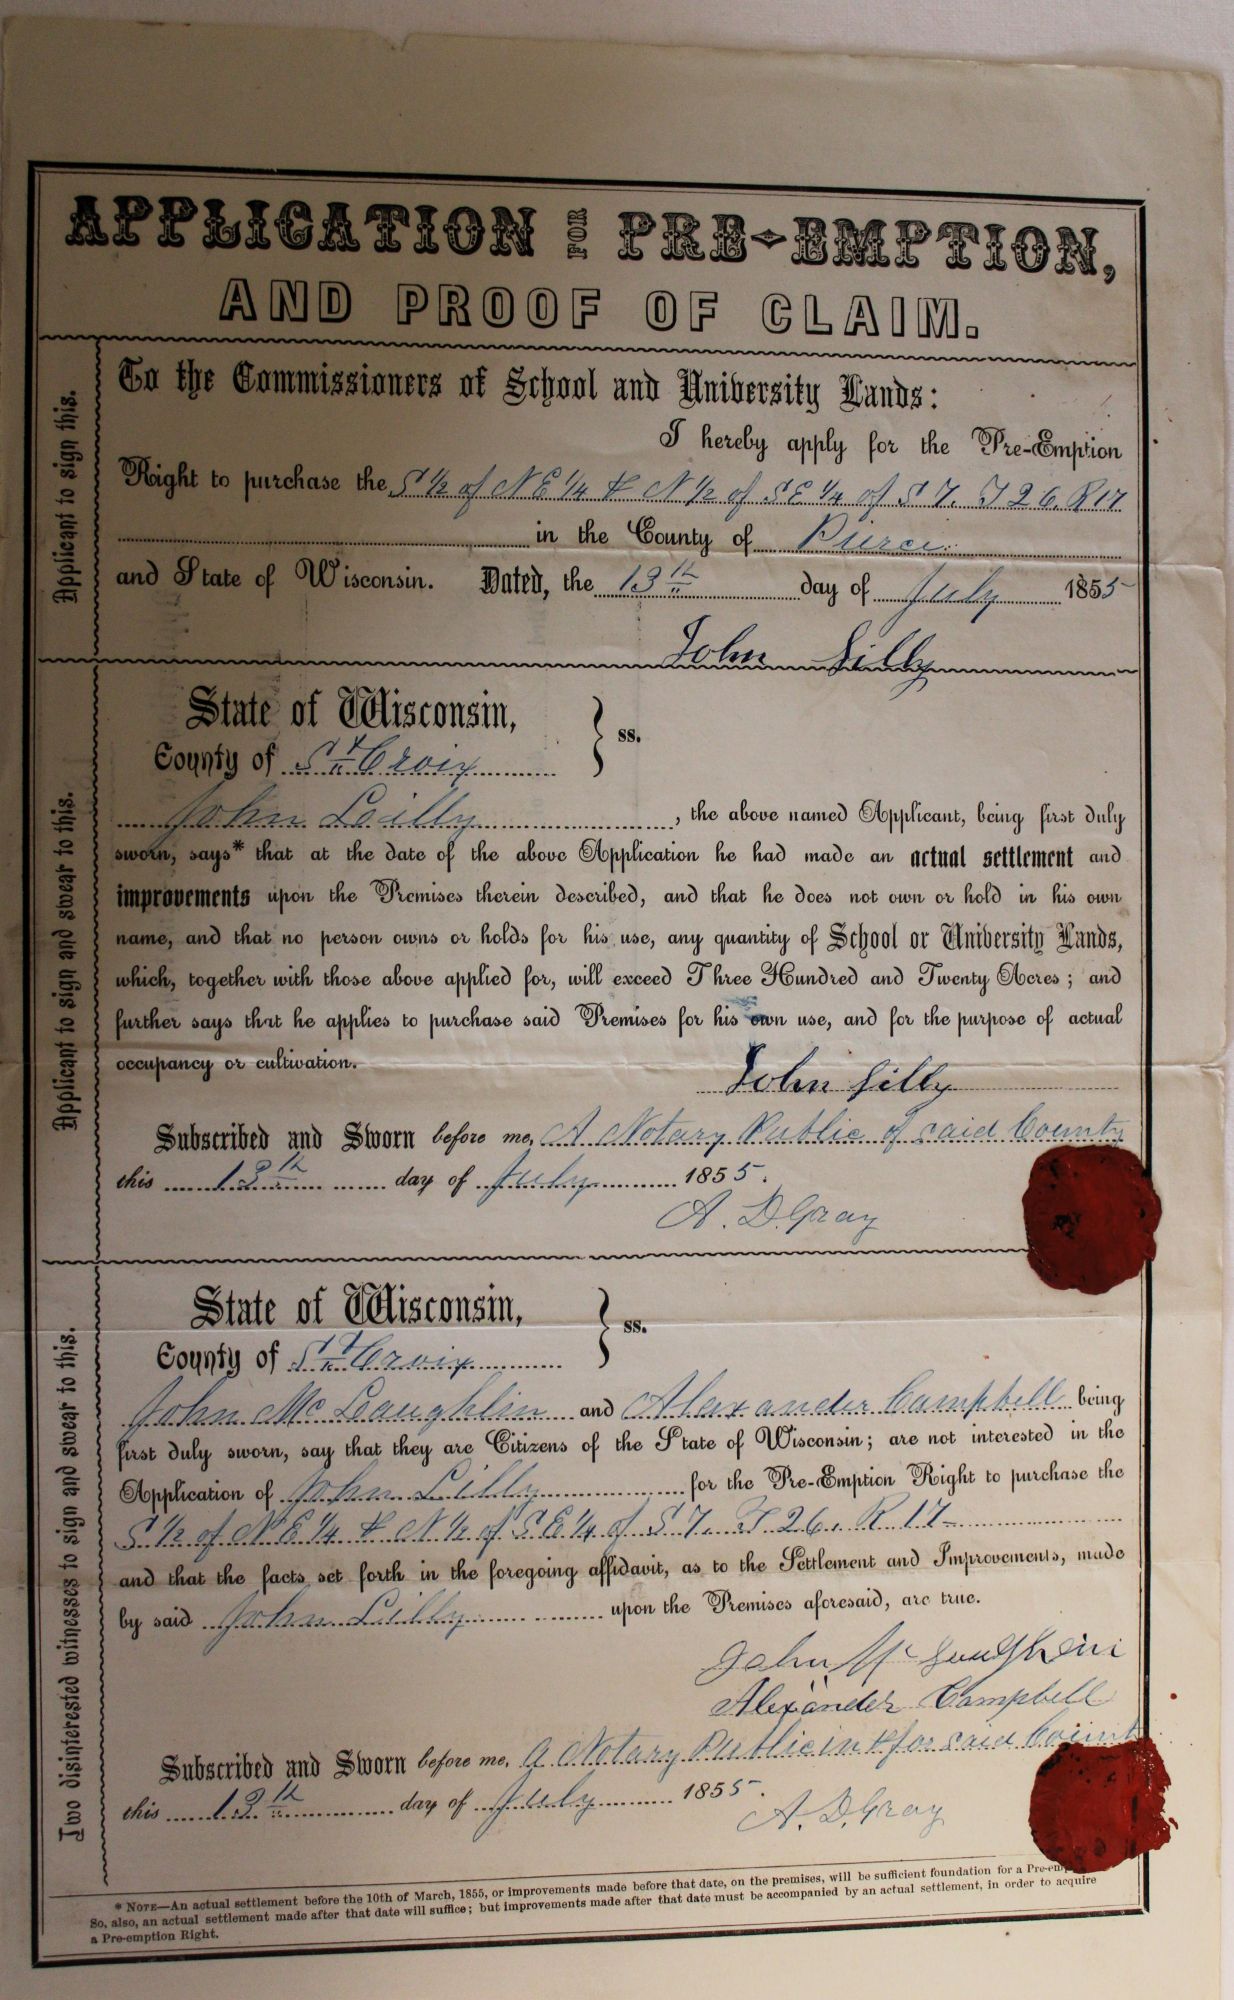 APPLICATION FOR PRE-EMPTION,
AND PROOF OF CLAIM.
Applicant to sign this.
To the Commissioners of School and University Lands:
I hereby apply for the Pre-Emption
Right to purchase the S 1/2 of N E 1/4 & N 1/2 of S E 1/4 of S 7. T 26. R 17
in the County of Pierce
and State of Wisconsin. Dated, the 13th day of July 1855
John Lilly
Applicant to sign and swear to this.
State of Wisconsin,
County of St Croix } ss.
John Lilly, the above named Applicant, being first duly
sworn, says* that at the date of the above Application he had made an actual settlement and
improvements upon the Premises therein described, and that he does not own or hold in his own
name, and that no person owns or holds for his use, any quantity of School or University Lands,
which, together with those above applied for, will exceed Three Hundred and Twenty Acres; and
further says that he applies to purchase said Premises for his own use, and for the purpose of actual
occupancy or cultivation.
John Lilly
Subscribed and Sworn before me, A Notary Public of said County
this 13th day of July 1855.
A. D. Gray
Two disinterested witnesses to sign and swear to this.
State of Wisconsin,
County of St Croix } ss.
John Mc Laughlin and Alexander Campbell being
first duly sworn, say that they are Citizens of the State of Wisconsin; are not interested in the
Application of John Lilly for the Pre-Emption Right to purchase the
S 1/2 of N E 1/4 & N 1/2 of S E 1/4 of S 7. T 26. R 17
and that the facts set forth in the foregoing affidavit, as to the Settlement and Improvements, made
by said John Lilly upon the Premises aforesaid, are true.
John Mc Laughlin
Alexander Campbell
Subscribed and Sworn before me, A Notary Public in & for said County
this 13th day of July 1855.
A. D. Gray
* NOTE—An actual settlement before the 10th of March, 1855, or improvements made before that date, on the premises, will be sufficient foundation for a Pre-emp
So, also, an actual settlement made after that date will suffice; but improvements made after that date must be accompanied by an actual settlement, in order to acquire
a Pre-emption Right.